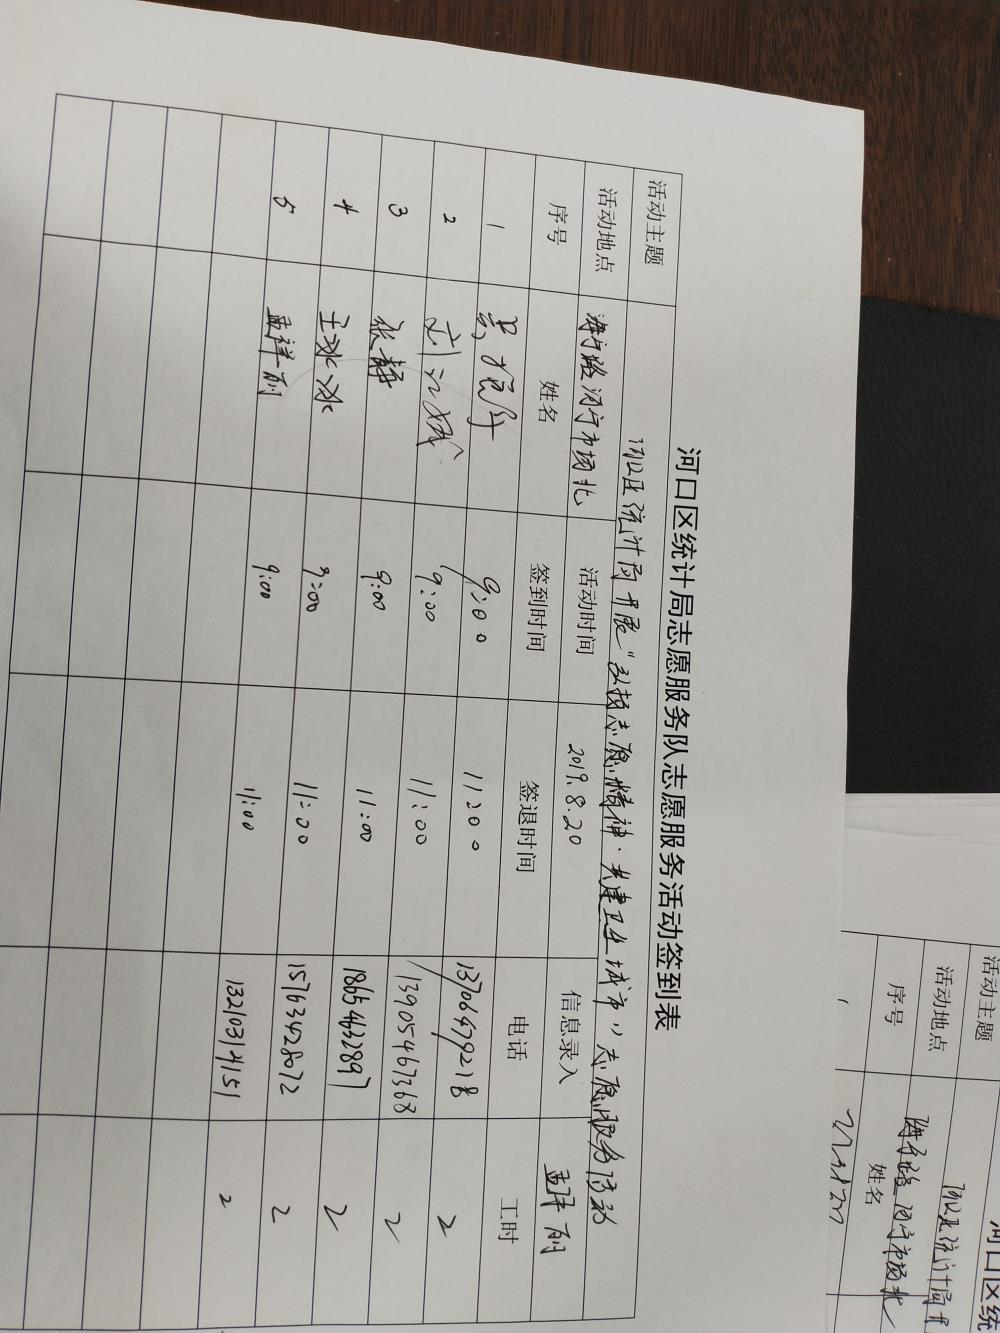 河口区统计局志愿服务队志愿服务活动签到表
活动主题 河口区统计局开展"弘扬志愿精神·共建卫生城市"志愿服务活动
活动地点 海宁路河宁市场北 活动时间 2019.8.20 信息录入 孟祥丽
序号 姓名 签到时间 签退时间 电话 工时
1 9:00 11:00 13706479218 2
2 9:00 11:00 13905467368 2
3 张静 9:00 11:00 18654632897 2
4 王冰冰 9:00 11:00 15763428072 2
5 孟祥丽 9:00 11:00 13210312151 2
河口区统
活动主题 河口区统计局开
活动地点 海宁路河宁市场北
序号 姓名
1